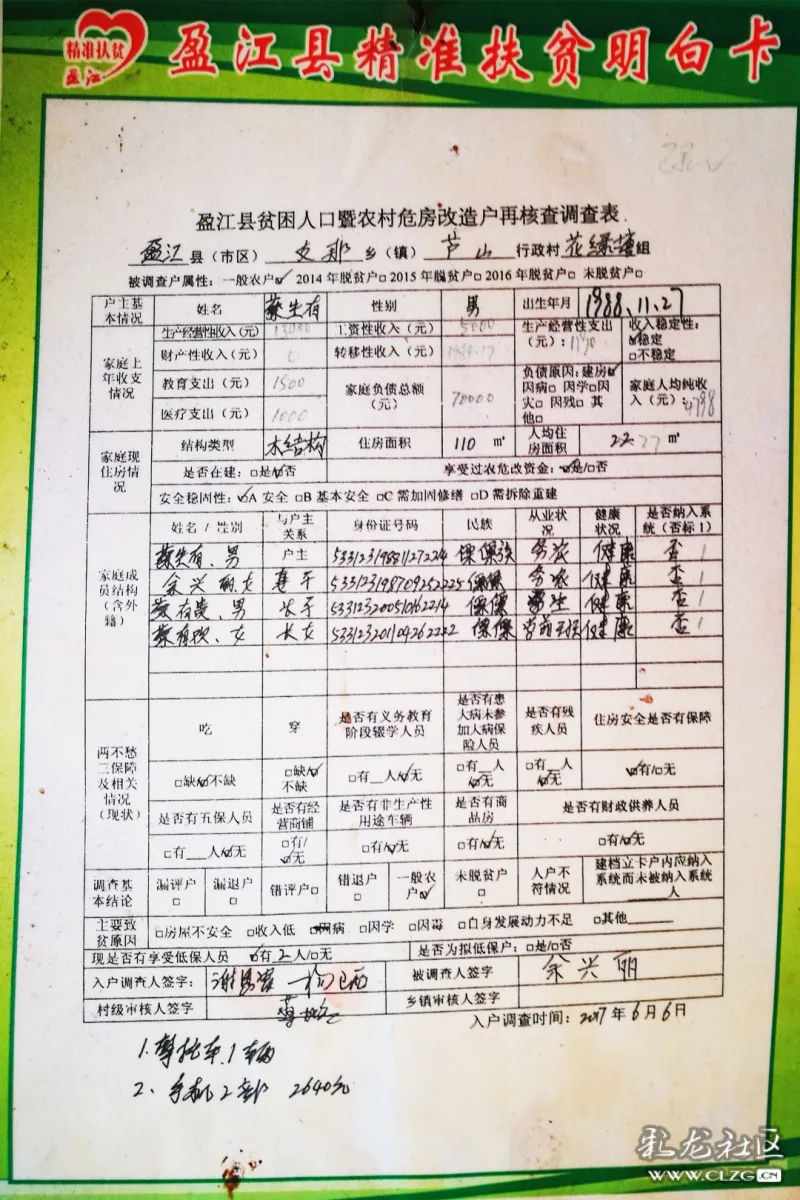 精准扶贫
盈江
盈江县精准扶贫明白卡
盈江县贫困人口暨农村危房改造户再核查调查表
盈江县（市区） 支那 乡（镇） 芦山 行政村 组
被调查户属性：一般农户☑ 2014年脱贫户□ 2015年脱贫户□ 2016年脱贫户□ 未脱贫户□
户主基本情况 姓名 蔡生有 性别 男 出生年月 1988.11.27
家庭上年收支情况
生产经营性收入（元） 工资性收入（元） 5000 生产经营性支出（元）：1170 收入稳定性：☑稳定 □不稳定
财产性收入（元） 0 转移性收入（元）
教育支出（元） 1500 家庭负债总额（元） 70000 负债原因：建房☑ 因病□ 因学□ 因灾□ 因残□ 其他□ 家庭人均纯收入（元）：4798
医疗支出（元） 1000
家庭现住房情况
结构类型 木结构 住房面积 110 ㎡ 人均住房面积 ㎡
是否在建：□是☑否 享受过农危改资金：☑是/□否
安全稳固性：☑A 安全 □B 基本安全 □C 需加固修缮 □D 需拆除重建
家庭成员结构（含外籍）
姓名／性别 与户主关系 身份证号码 民族 从业状况 健康状况 是否纳入系统（否标1）
蔡生有、男 户主 傈僳族 务农 健康 否 1
余兴丽、女 妻子 傈僳 务农 健康 否 1
男 长子 傈僳 学生 健康 否 1
女 长女 傈僳 健康 否 1
两不愁三保障及相关情况（现状）
吃 穿 是否有义务教育阶段辍学人员 是否有患大病未参加大病保险人员 是否有残疾人员 住房安全是否有保障
□缺☑不缺 □缺☑不缺 □有__人☑无 □有__人☑无 □有__人☑无 ☑有/□无
是否有五保人员 是否有经营商铺 是否有非生产性用途车辆 是否有商品房 是否有财政供养人员
□有___人☑无 □有/☑无 □有/☑无 □有/☑无 □有/☑无
调查基本结论 漏评户□ 漏退户□ 错评户□ 错退户□ 一般农户☑ 未脱贫户□ 人户不符情况 建档立卡户内应纳入系统而未被纳入系统____人
主要致贫原因 □房屋不安全 □收入低 因病 □因学 □因毒 □自身发展动力不足 □其他______
现是否有享受低保人员 ☑有 2 人/□无 是否为拟低保户：□是/□否
入户调查人签字： 被调查人签字 余兴丽
村级审核人签字 乡镇审核人签字
入户调查时间：2017年6月6日
1.摩托车1辆
2、手机2部 2640元
彩龙社区
WWW.CLZG.CN